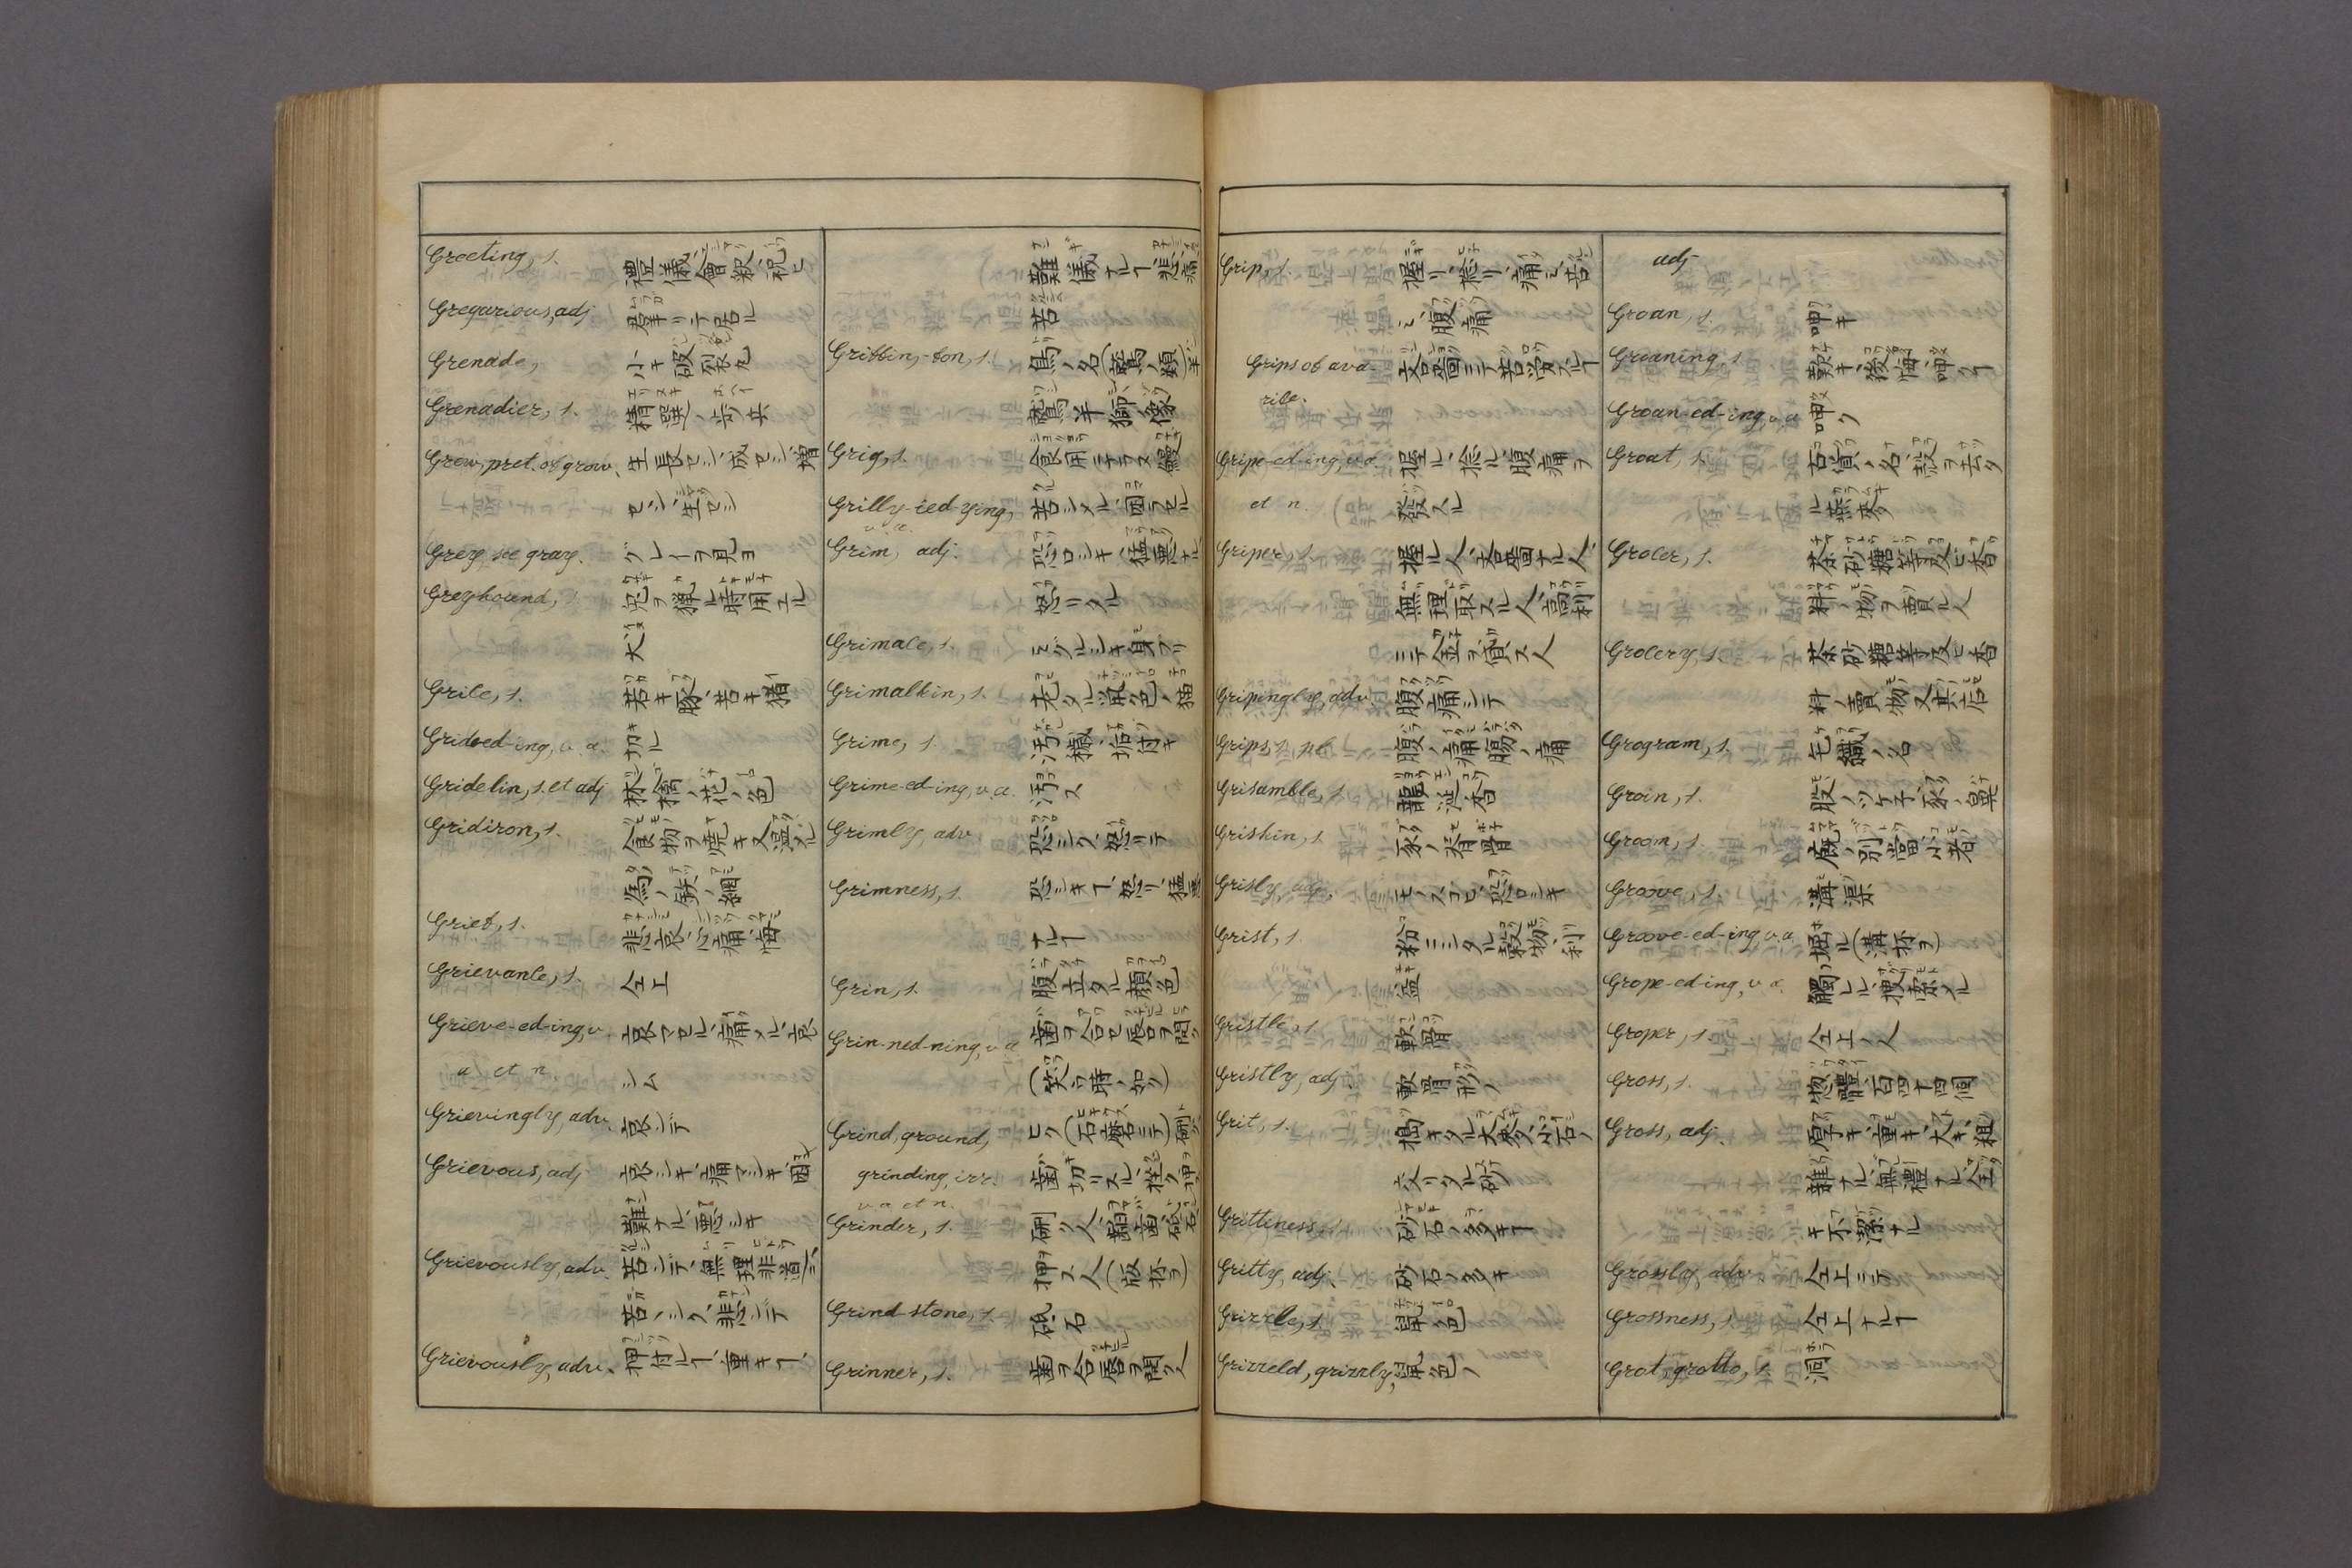 Greeting, s. 禮儀、會釈、祝ヒ
Gregarious, adj 群リテ居ル
Grenade, 小キ破裂丸
Grenadier, s. 精選ノ歩兵
Grew, pret. of grow, 生長セシ、成セシ、増
セシ、生セシ
Grey see gray. グレーヲ見ヨ
Greyhound, s. 兎ヲ猟ル時用ユル
犬
Grice, s. 若キ豚、若キ猪
Grideed-ing, v. a. 切ル
Gridelin, s. et adj 林檎ノ花ノ色
Gridiron, s. 食物ヲ焼キ又温ル
為ノ鉄ノ網
Grief, s. 悲哀、心痛、悔
Grievance, s. 仝上
Grieve-ed-ing, v. 哀マセル、痛メル、哀
a et n. シム
Grievingly, adv. 哀シテ
Grievous, adj 哀シキ、痛マシキ、困
難ナル、悪シキ
Grievously, adv. 苦シテ、無理非道ニ、
苦シク、悲シテ
Grievously, adv. 押付ルヿ、重キヿ、
難儀ナルヿ、悲痛
苦
Griffin,-fon, s. 鳥ノ名(鷲ノ類)半
鷲半獅像
Grig, s. 食用ニナラヌ鰻
Grilly-ied-ying, 苦シメル、困ラセル
v. a.
Grim, adj. 恐ロシキ、猛悪ナル
怒リタル
Grimace, s. ミグルシキ身ブリ
Grimalkin, s. 老タル鼡色ノ猫
Grime, s. 汚穢、垢付キ
Grime-ed-ing, v. a. 汚ス
Grimly, adv 恐シク、怒リテ
Grimness, s. 恐シキヿ、怒リ、猛悪
ナルヿ
Grin, s. 腹立タル顔色
Grin-ned-ning, v. a 歯ヲ合セ唇ヲ開ク
(笑フ時ノ如ク)
Grind, ground, ヒク(石磨ニテ)研ク
grinding, irr. 歯切リスル、挫ク、押
v. a et n.
Grinder, s. 研ク人、齨歯、砥石
押ス人(版抔ヲ)
Grind-stone, s. 砥石
Grinner, s. 歯ヲ合唇ヲ開ク人
Grip, s. 握リ、捻リ、痛ミ、苦
ミ、腹痛
Grips of ava- 吝嗇ニテ苦労スルヿ
rice.
Gripe-ed-ing, v. a. 握ル、捻ル、腹痛ヲ
et n. 發スル
Griper, s. 握ル人、吝嗇ナル人、
無理取スル人、高利
ニテ金ヲ貸ス人
Gripingly, adv. 腹痛シテ
Grips, s. pl. 腹ノ痛、腸ノ痛
Grisamble, s. 龍涎香
Griskin, s. 豕ノ脊骨
Grisly, adj. モノスゴヒ、恐ロシキ
Grist, s. 粉ニシタル穀物、利
益
Gristle, s. 軟骨
Gristly, adj. 軟骨形ノ
Grit, s. 搗キタル大麥、小石ノ
交リタル砂
Grittiness, s. 砂石ノ多キヿ
Gritty, adj. 砂石ノ多キ
Grizzle, s. 鼠色
Grizzeld, grizzly, 鼠色ノ
adj
Groan, s. 呻キ
Groaning, s. 歎キ、後悔、呻クヿ
Groan-ed-ing, v. a. 呻ク
Groat, s. 古貨ノ名、殻ヲ去タ
ル燕麥
Grocer, s. 茶砂糖等及ヒ香
料ノ物ヲ賣ル人
Grocery, s. 茶砂糖等及ヒ香
料ノ賣物又其店
Grogram, s. 毛織ノ名
Groin, s. 股ノツケ子、豕ノ鼻
Groom, s. 廐ノ別當、小者
Groove, s. 溝渠
Groove-ed-ing, v. a. 掘ル(溝抔ヲ)
Grope-ed-ing, v. a. 觸レル、捜索ル
Groper, s. 仝上ノ人
Gross, s. 物體、百四十四個
Gross, adj. 厚キ、重キ、大キ、粗
雑ナル、無禮ナル、全
キ、不潔ナル
Grossly, adv. 仝上ニテ
Grossness, s. 仝上ナルヿ
Grot, grotto, s. 洞